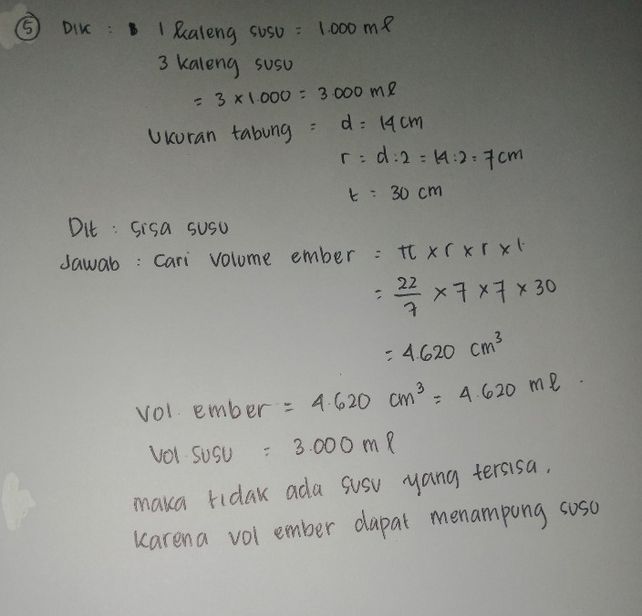 ⑤ Dik : 1 kaleng susu = 1.000 ml
3 kaleng susu
= 3 x 1.000 = 3.000 ml
Ukuran tabung = d = 14 cm
r = d : 2 = 14 : 2 = 7 cm
t = 30 cm
Dit : sisa susu
Jawab : Cari volume ember = π x r x r x t
= 22/7 x 7 x 7 x 30
= 4.620 cm³
Vol. ember = 4.620 cm³ = 4.620 ml.
Vol. susu = 3.000 ml
maka tidak ada susu yang tersisa.
karena vol ember dapat menampung susu